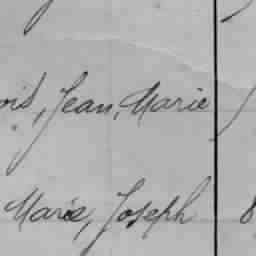 Jean, Marie
Marie, Joseph 8